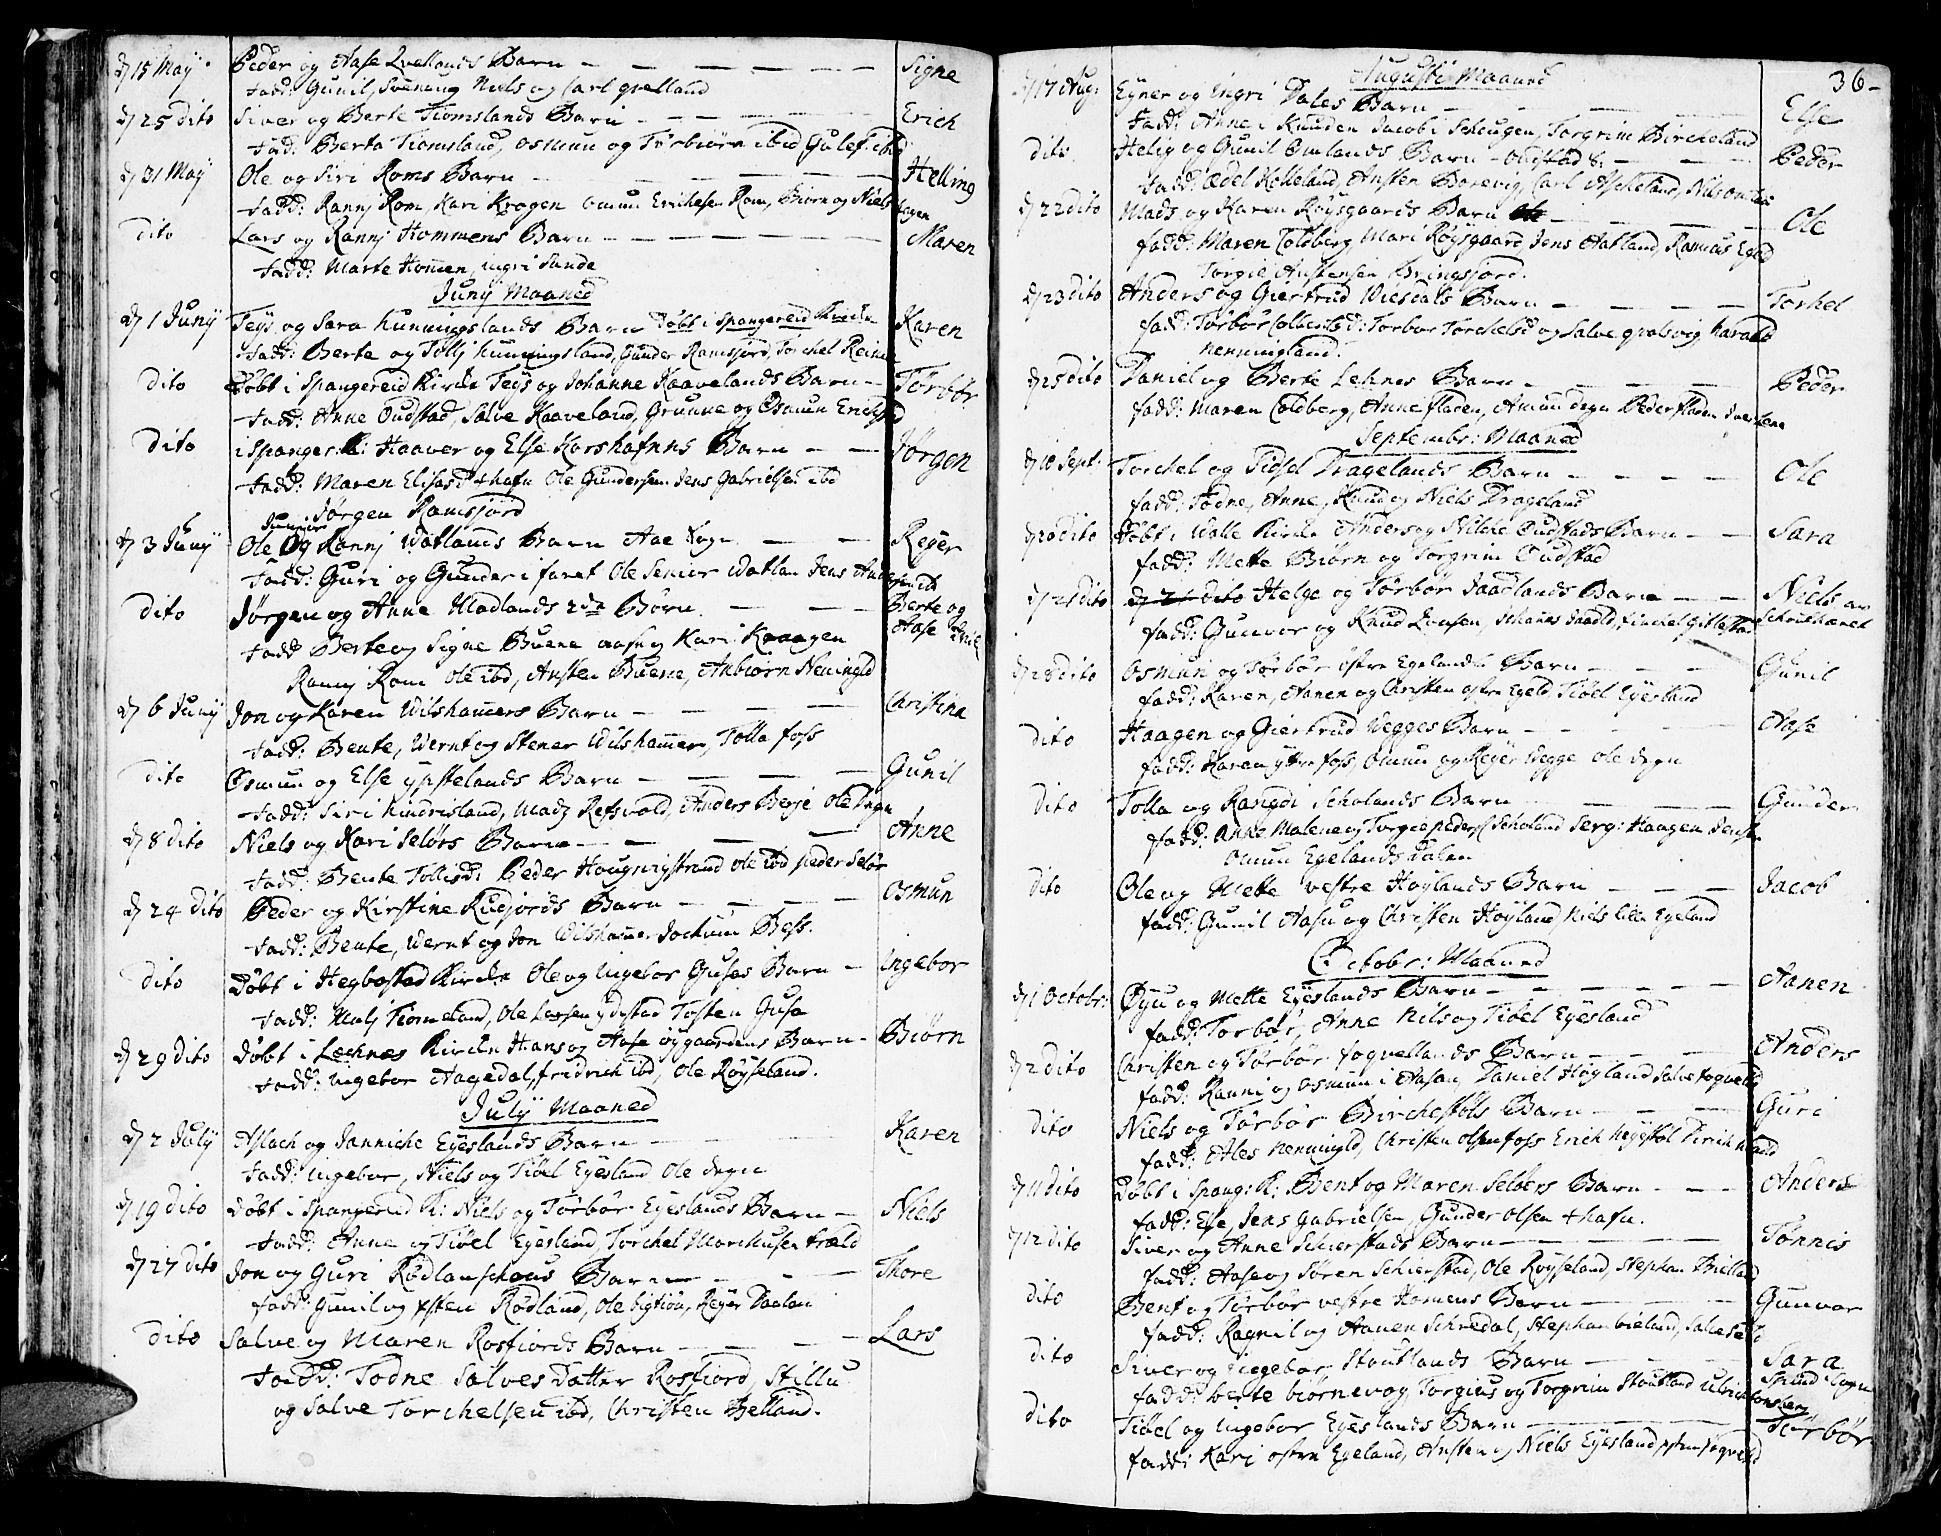 d 15 May Peder og Aase Qvellands Barn — Signe
Fadd: Gunil, Svenung Niels og Carl qvelland
d 25 dito Siver og Berte Tiomslands Barn — Erich
Fadd: Berta Tiomsland, osmun og Törbiörn ibid Gulef ibid
d 31 May Ole og Siri Roms Barn — Helling
Fadd: Rannj Rom, Kari Krogen omun Erichsen Rom, Biörn og Niels
dito Lars og Rannj Hommens Barn — Maren
Fadd: Marte Homen, ingri Sande
Junij Maaned
d 1 Junij Teys og Sara Kunningslands Barn Döbt i Spangereid Kircke Karen
Fadd: Berte og Tollj Kunningsland, Gunder Ramsjord, Torchel Reime
dito Döbt i Spangereid Kircke Teys og Johanne Kaavelands Barn — Törbör
Fadd: Anne Oudstad, Salve Kaaveland, Grunne og Osmun Erichs
dito i Spanger: K: Haaver og Else Korshafnns Barn — Jörgen
Fadd: Maren Elisasd +hafn Ole Gundersen Jens Gabrielsen ibd
Jörgen Ramsjord
Junior
d 3 Junij Ole Og Rannj Watlands Barn — Reyer
Fadd: Guri og Gunder i faret Ole Senior Watlan Jens
dito Jörgen og Anne Udlands 2de Börn — Berte og
Aase
Fadd Berte og Signe Buene Aase og Kari Kaaagen
Rannj Rom ole ibd, Ansten Buene, Anbiörn Neningld
d 6 Junij Jon og Karen Wilshamers Barn — Christina
Fadd: Bente, Wernt og Stener Wilshammer, Tolla foss
dito Osmun og Else ypstelands Barn — Gunil
Fadd: Siri Kindrisland, Madz Refsvold, Anders Berje ole Degn
d 8 dito Niels og Kari Selörs Barn — Anne
Fadd: Bente Tollisd: Peder Hougvigstrand ole ibd peder Selör
d 24 dito Peder og Kirstine Rudjords Barn — Osmun
Fadd: Bente, Wernt og Jon Wilshamer Jochum Bess.
dito Döbt i Hegbostad Kircke Ole og Ingebor Guses Barn — Ingebor
Fadd: Malj Tiomsland, Ole Lassen ydestad Tosten Guse
d 29 dito Döbt i Lechnes Kircke Hans og Aase öygaardens Barn — Biörn
Fadd: Ingebor Aagedal, fridrich ibd, Ole Röyseland.
Julij Maaned
d 2 July Aslach og Janniche Eyeslands Barn — Karen
Fadd: Ingebor, Niels og Tiöel Eyesland Ole degn
d 19 dito Döbt i Spangereid K: Niels og Törbör Eyeslands Barn — Niels
Fadd: Anne og Tiöel Eyesland, Torchel Marchusen træld
d 27 dito Jon og Guri Rödlands Barn — Thore
Fadd: Gunil og Rödland, Ole Sigtiön, Reyer Daalan
dito Salve og Maren Rosfiords Barn — Lars
Fadd: Todne Salves Datter Rosfiord, Stillu
og Salve Torchelsen ibd, Christen Belland.
36
Augusti Maaned
d 17 Aug: Eyner og Engri Dales Barn — Else
Fadd: Anne i Knuden Jacob i Scheugen, Torgrim Bircheland
dito Helje og Gunil Omlands Barn — Peder
Fadd: Ædel Kolleland, Ansten Barevig, Carl Ascheland, Nils
d 22 dito Mads og Karen Röysgaards Barn — Ole
fadd: Maren Coldberg, Mari Röysgaard, Jens Aatland, Rasmus Egeld
Torgie Anstensen Bringsjord.
d 23 dito Anders og Giertrud Viesdals Barn — Torkel
fadd: Törbör Torchelsd og Salve qvalsvig harald
Nenningland.
d 25 dito Daniel og Berte Lehnes Barn — Peder
fadd: Maren Coldberg, Anne fladen, Amun degn Peder fladen
Septembr: Maaned
d 10 Sept: Torchel og Sidsel Dragelands Barn — Ole
fadd: Todne, Anne, Knud og Niels Drageland
d 20 dito Döbt i Walle Kircke Anders og Oudstads Barn — Sara
fadd: Mette Biörn og Torgrim Oudstad
d 21 dito Helge og Törbör Jaadlands Barn — Niels
fadd: Gunvor og Knud
d 28 dito Osmun og Törbör östre Egelands Barn — Gunil
fadd: Karen, Aanen og Christen östre Egeld, Tiöel Eyesland
dito Haagen og Giertrud Wegges Barn — Aase
fadd: Karen yttre foss, Omun og Reyer Wegge ole degn
dito Tolla og Rangdi Scholands Barn — Gunder
fadd: Anne Malene og Torgie Scholand Serg: Haagen
omun Egelands Dalen
dito Ole og Mette vestre Höylands Barn — Jacob
fadd: Gunil Aase og Christen Höyland, Niels lille Egeland
Octobr: Maaned
d 1 Octobr: Öyu og Mette Eyeslands Barn — Aanen
fadd: Torbör, Anne Nils og Tiöel Eyesland
d 2 dito Christen og Törbör foqvellands Barn — Anders
fadd: Ranni og osmun i Aasan, Daniel Höyland Salve foqveld
dito Niels og Törbör Birchestöls Barn — Guri
fadd: Ales Nenningld, Christen olsen foss Erich
d 11 dito Döbt i Spang: K: Bent og Maren Selöers Barn — Anders
fadd: Else, Jens Gabrielsen, Gunder olsen +hafn.
d 12 dito Siver og Anne Schierstads Barn — Tönnis
fadd: Aase og Sören Schierstad, Ole Röyseland, Stephan Brielland
dito Bent og Törbör vestre Homens Barn — Gunvor
fadd: Ragnil og Aanen Schredal, Stephan
dito Siver og Ingebor Stoutlands Barn — Sara
fadd: berte biörnevog, Torgius og Torgrim Stoutland
dito Tiöel og Ingebor Egeslands Barn — Törbör
fadd: Kari östre Egeland, Ansten og Niels Eyesland